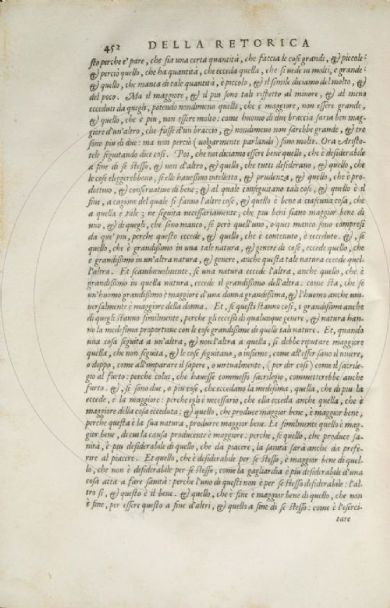 452 DELLA RETORICA
sto perche è pare, che sia una certa quantità, che faccia le cose grandi, & piccole:
& perciò quello, che ha quantità, che ecceda quella, che si uede in molti, è grande:
& quello, che manca di tale quantità, è piccolo, & il simile diciamo del molto, &
del poco. Ma il maggiore, & il piu sono tali rispetto al minore, & al meno
ecceduti da quegli, potendo nondimeno quello, che è maggiore, non essere grande,
& quello, che è piu, non essere molto: come huomo di due braccia saria ben mag-
giore d'un'altro, che fusse d'un braccio, & nondimeno non sarebbe grande, & tre
sono piu di due: ma non perciò (uolgarmente parlando) sono molto. Ora Aristo-
tele seguitando dice così. Poi, che noi diciamo essere bene quello, che è desiderabile
a fine di se stesso, & non d'altro, & quello, che tutti desiderano, & quello, che
le cose eleggerebbono, se elle hauessino intelletto, & prudenza, & quello, che è pro-
duttiuo, & conseruatiuo di bene, & al quale conseguitano tali cose, & quello è il
fine, a cagione del quale si fanno l'altre cose, & quello è bene a ciascuna cosa, che
a quella è tale; ne seguita necessariamente, che piu beni siano maggior bene di
uno, & di quegli, che sono manco, se però quell'uno, o quei manco sono compresi
da que' piu, perche questo eccede, & quello, che è contenuto, è ecceduto. &, se
quello, che è grandissimo in una tal natura, & genere di cose, eccede quello, che
è grandissimo in un'altra natura, & genere, anche questa tal natura eccede quel-
l'altra. Et scambieuolmente, se una natura eccede l'altra, anche quello, che è
grandissimo in quella natura, eccede il grandissimo dell'altra. come sta, che se
un'huomo grandissimo è maggiore d'una donna grandissima, & l'huomo anche uni-
uersalmente è maggiore della donna. Et, se questi stanno così, i grandissimi anche
di quegli stanno similmente, perche gli eccessi di qualunque genere, & natura han-
no la medesima proportione con le cose grandissime di quelle tali nature. Et, quando
una cosa seguita a un'altra, & non l'altra a quella, si debbe reputare maggiore
quella, che non seguita, & le cose seguitano, o insieme, come all'esser sano il uiuere,
o doppo, come all'imparare il sapere, o uirtualmente, (per dir così) come al sacrile-
gio al furto: perche colui, che hauesse commesso sacrilegio, commetterebbe anche
furto. &, se sono due, o piu cose, che eccedano la medesima, quella, che di piu la
eccede, è la maggiore: perche egli è necessario, che ella ecceda anche quella, che è
maggiore della cosa ecceduta: & quello, che produce maggior bene, è maggior bene,
perche questa è la sua natura, produrre maggior bene. Et similmente quello è mag-
gior bene, di cui la causa producente è maggiore: perche, se quello, che produce sa-
nità, è piu desiderabile di quello, che dà piacere, la sanità sarà anche da prefe-
rire al piacere. Et quello, che è desiderabile per se stesso, è maggior bene di quel-
lo, che non è desiderabile per se stesso, come la gagliardia è piu desiderabile d'una
cosa atta a fare sanità: perche l'uno di questi non è per se stesso desiderabile: l'al-
tro sì, & questo è il bene. & quello, che è fine è maggior bene di quello, che non
è fine, per essere questo a fine d'altri, & quello a fine di se stesso: come è l'eserci-
tare